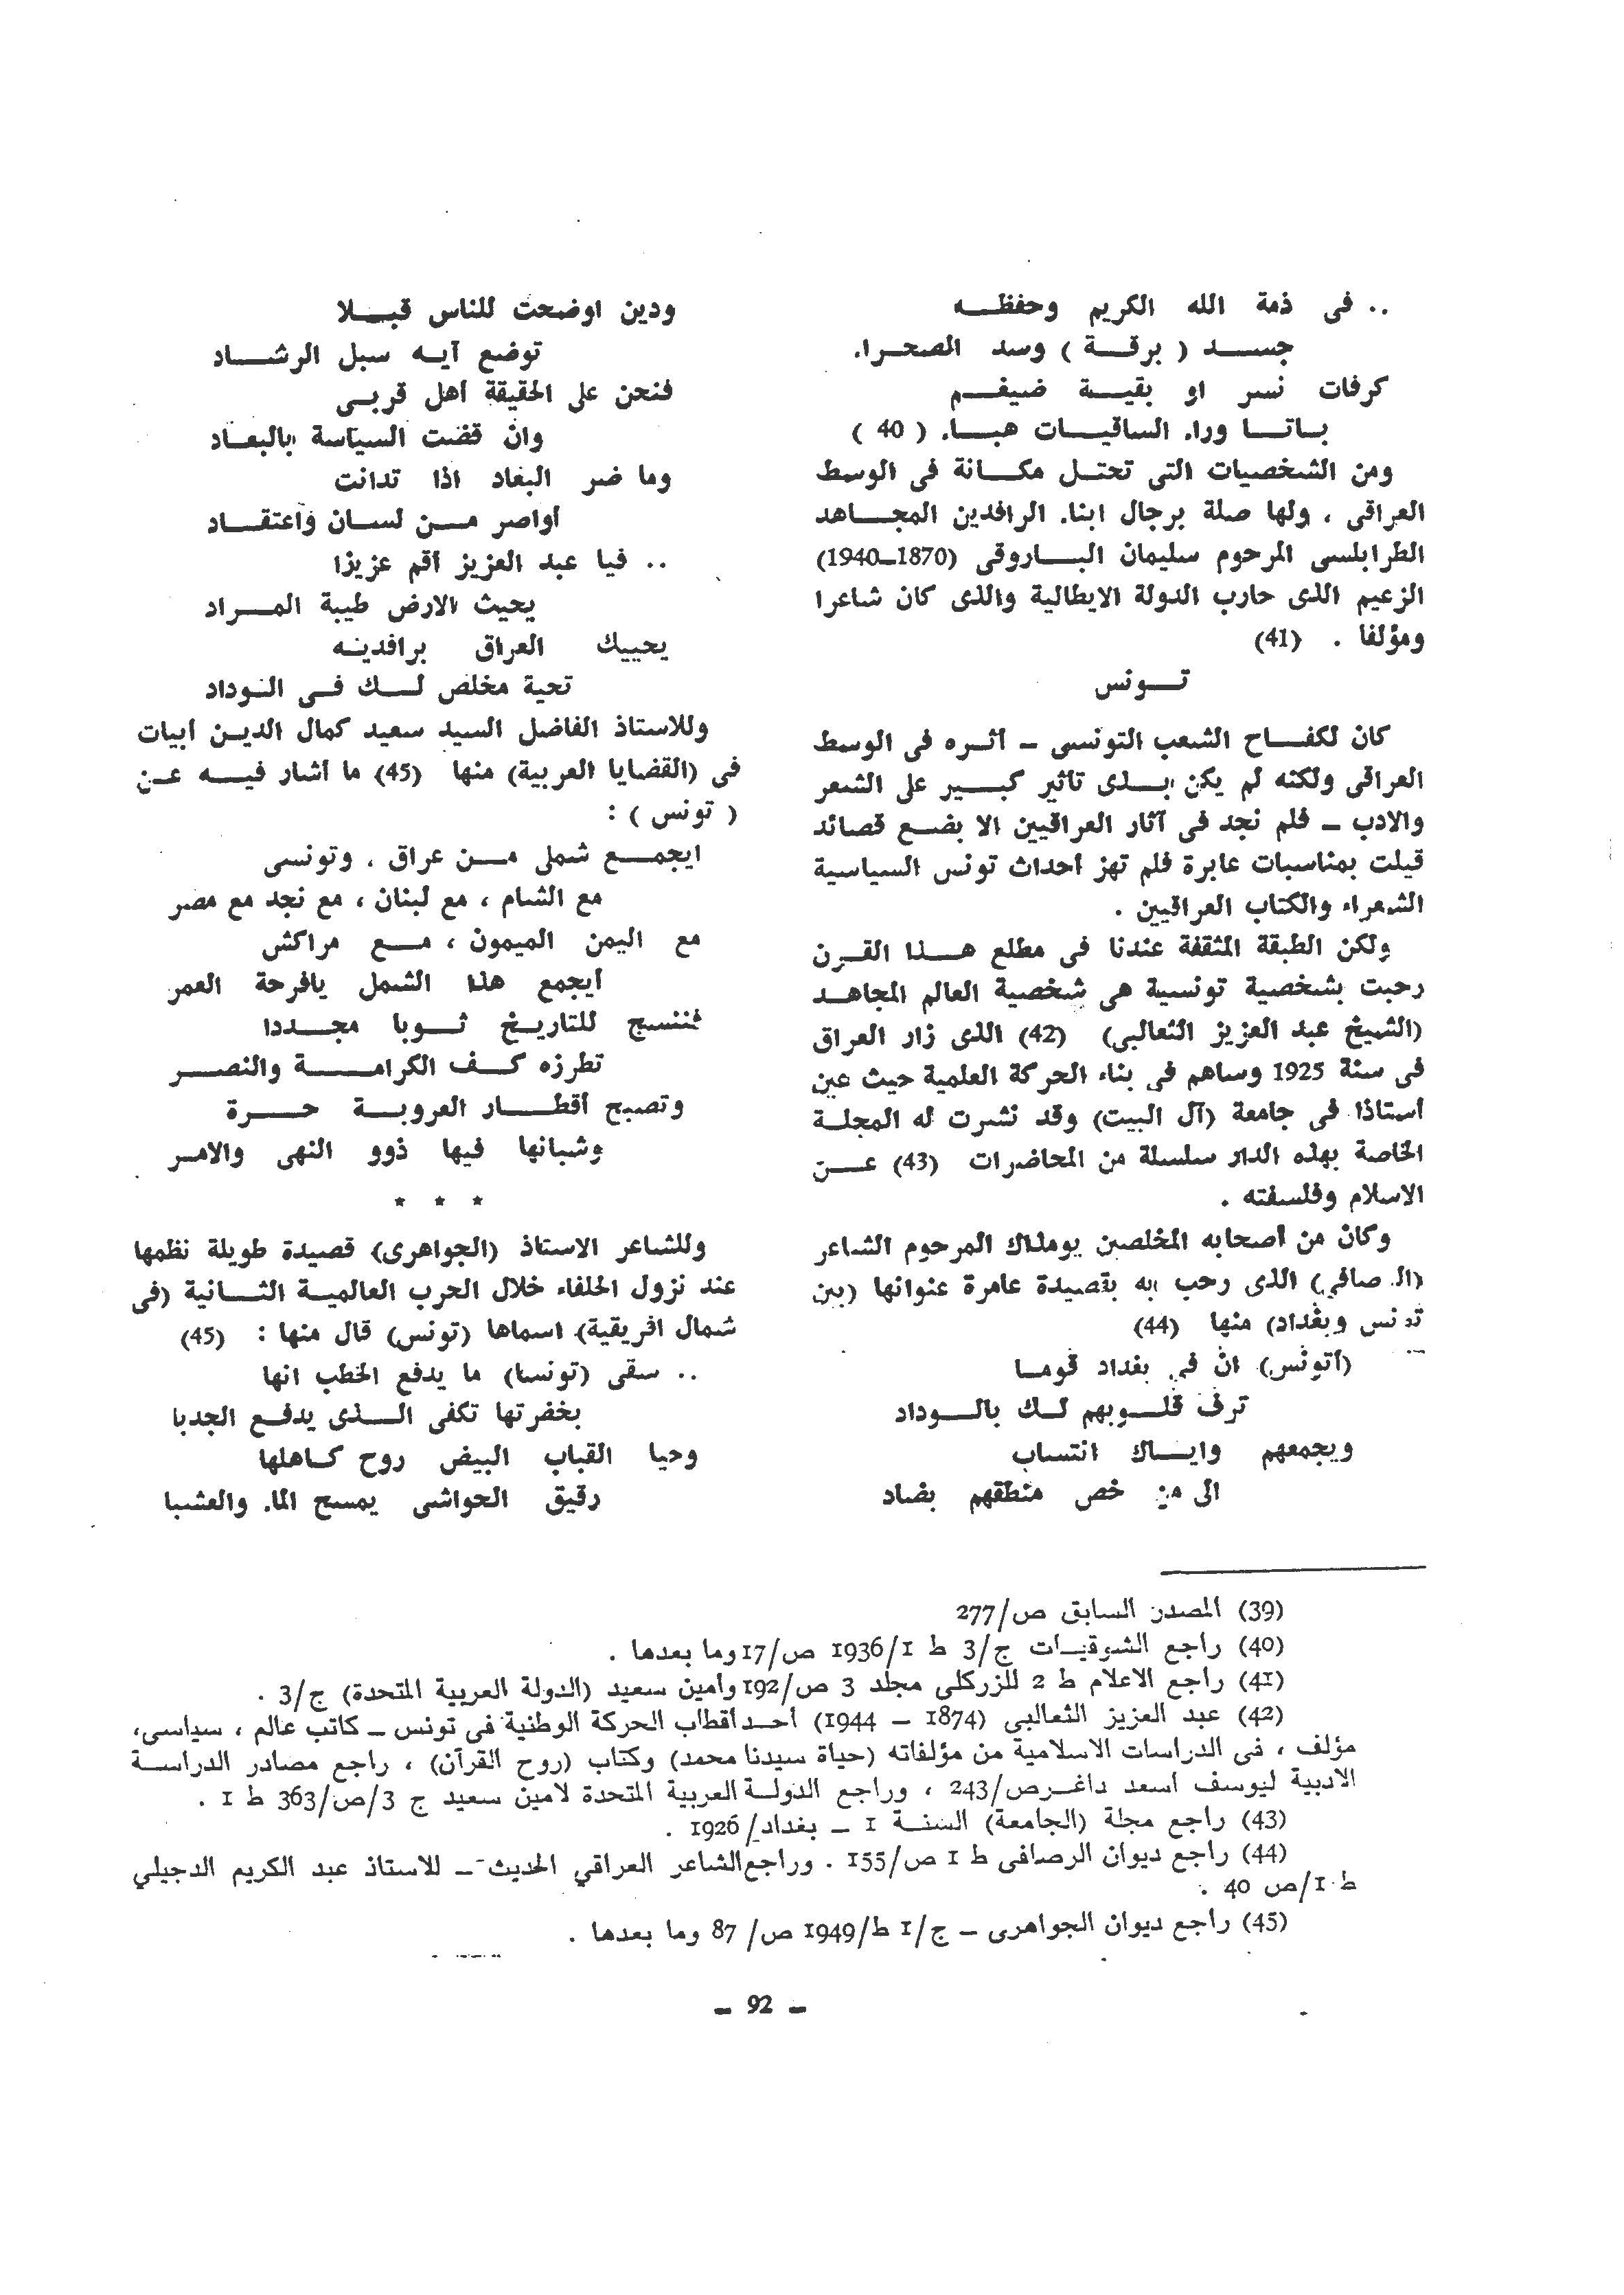 .. فى ذمة الله الكريم وحفظـــه
جســـد ( برقـــة ) وسد الصحـرا.
كرفات نسر او بقيـــة ضيغــم
بـــاتـــا ورا. الساقيـــات هبـــا. ( 40 )
ومن الشخصيات التى تحتــل مكـــانة فى الوسط
العراقى ، ولها صلة برجال ابنا. الرافدين المجـــاهد
الطرابلسى المرحوم سليمان البـــاروقى (1870–1940)
الزعيم الذى حارب الدولة الايطالية والذى كان شاعرا
ومؤلفا . (41)
تـــونس
كان لكفـــاح الشعب التونسى – أثــره فى الوسط
العراقى ولكنه لم يكن بـــذى تاثير كبـــير على الشعر
والادب – فلم نجد فى آثار العراقيين الا بضـــع قصائد
قيلت بمناسبات عابرة فلم تهز احداث تونس السياسية
الشعراء والكتاب العراقيين .
ولكن الطبقة المثقفة عندنا فى مطلع هـــذا القــرن
رحبت بشخصية تونسية هى شخصية العالم المجاهــد
(الشيخ عبد العزيز الثعالبى) (42) الذى زار العراق
فى سنة 1925 وساهم فى بناء الحركة العلمية حيث عين
أستاذا فى جامعة (آل البيت) وقد نشرت له المجلــة
الخاصة بهذه الدار سلسلة من المحاضرات (43) عـــن
الاسلام وفلسفته .
وكان من اصحابه المخلصين يومذاك المرحوم الشاعر
(الـ صافى) الذى رحب به بقصيدة عامرة عنوانها (بين
تونس وبغداد) منها (44)
(أتونس) ان فى بغداد قومــا
ترف قلـــوبهم لــك بالـــوداد
ويجمعهم وايـــاك انتساب
الى من خص منطقهم بضاد
ودين اوضحت للناس قبـــلا
توضع آيــه سبل الرشـــاد
فنحن على الحقيقة أهل قربــى
وان قضت السياسة بالبعــاد
وما ضر البعاد اذا تدانت
أواصر مـــن لســـان واعتقـــاد
.. فيا عبد العزيز أقم عزيزا
يحيث الارض طيبة المـــراد
يحييك العراق برافدينــه
تحية مخلص لـــك فـى الـوداد
وللاستاذ الفاضل السيد سعيد كمال الديـن أبيات
فى (القضايا العربية) منها (45) ما أشار فيـــه عــن
( تونس ) :
ايجمـــع شملى مـــن عراق ، وتونسى
مع الشام ، مع لبنان ، مع نجد مع مصر
مع اليمن الميمون ، مـــع مراكش
أيجمع هذا الشمل يافرحة العمر
فننسج للتاريـــخ ثـــوبا مجـــددا
تطرزه كـــف الكرامـــــة والنصـــر
وتصبح أقطـــار العروبـــة حـــرة
وشبانها فيها ذوو النهى والامر
* * *
وللشاعر الاستاذ (الجواهرى) قصيدة طويلة نظمها
عند نزول الحلفاء خلال الحرب العالميــة الثـــانية (فى
شمال افريقية) اسماها (تونس) قال منها : (45)
.. سقى (تونسا) ما يدفع الخطب انها
بخفرتها تكفى الـــذى يدفــع الجدبا
وحيا القباب البيض روح كــاهلها
رقيق الحواشى يمسح الما. والعشبا
(39) المصدر السابق ص/277
(40) راجع الشوقيــات ج/3 ط 1/1936 ص/17 وما بعدها .
(41) راجع الاعلام ط 2 للزركلى مجلد 3 ص/192 وأمين سعيد (الدولة العربية المتحدة) ج/3 .
(42) عبد العزيز الثعالبى (1874 – 1944) أحــد أقطاب الحركة الوطنية فى تونس – كاتب عالم ، سياسى،
مؤلف ، فى الدراسات الاسلامية من مؤلفاته (حياة سيدنا محمد) وكتاب (روح القرآن) ، راجع مصادر الدراســة
الادبية ليوسف أسعد داغــر ص/243 ، وراجع الدولــة العربية المتحدة لامين سعيد ج 3/ص/363 ط 1 .
(43) راجع مجلة (الجامعة) السنـــة 1 – بغداد/1926 .
(44) راجع ديوان الرصافى ط 1 ص/155 . وراجع الشاعر العراقي الحديث – للاستاذ عبد الكريم الدجيلي
ط 1/ص 40 .
(45) راجع ديوان الجواهرى – ج/1 ط/1949 ص/ 87 وما بعدها .
– 92 –